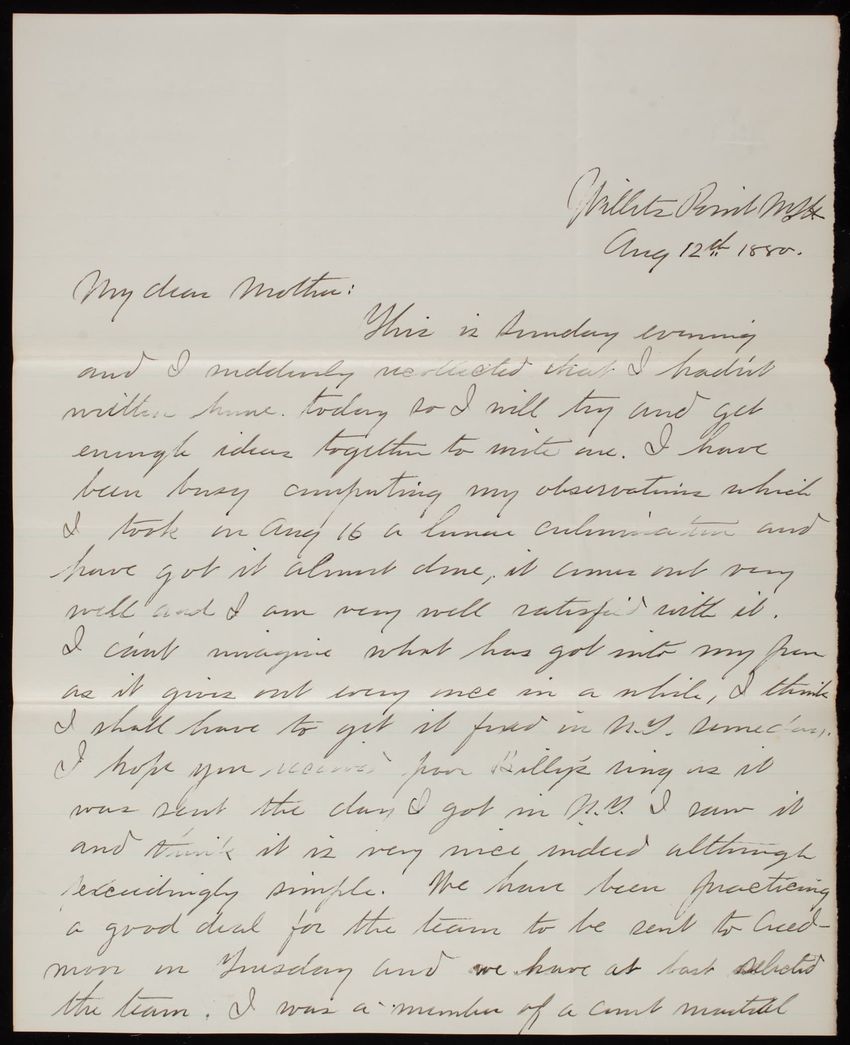 Willets Point NYH
Aug 12th 1880.
My dear Mother:
This is Sunday evening
and I suddenly recollected that I hadn't
written home today so I will try and get
enough ideas together to write one. I have
been busy computing my observations which
I took on Aug 16 a lunar culmination and
have got it almost done, it comes out very
well and I am very well satisfied with it.
I can't imagine what has got into my pen
as it gives out every once in a while, I think
I shall have to get it fixed in N.Y. someday.
I hope you received poor Billy's ring as it
was sent the day I got in N.Y. I saw it
and think it is very nice indeed although
exceedingly simple. We have been practicing
a good deal for the team to be sent to Creed-
moor on Tuesday and we have at last selected
the team. I was a member of a court martial